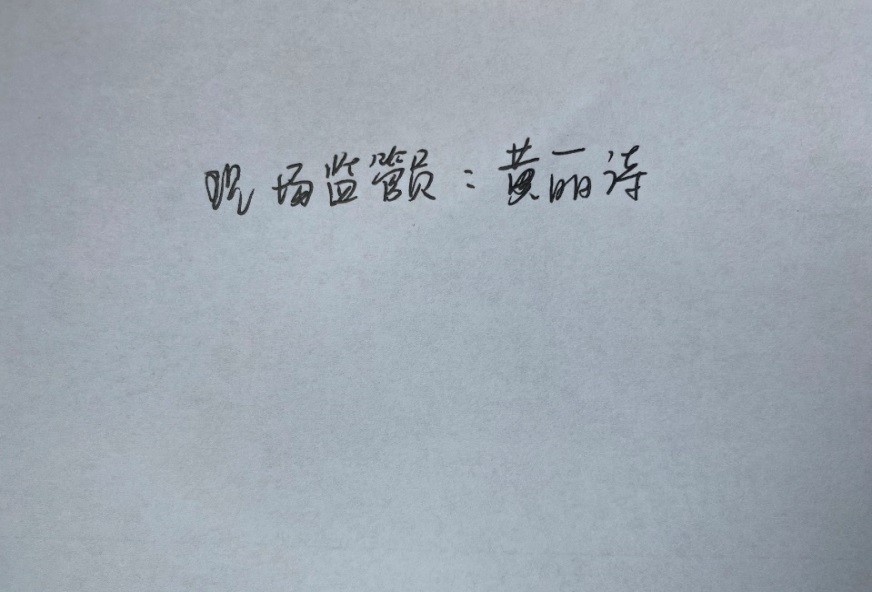 现场监管员：黄丽诗